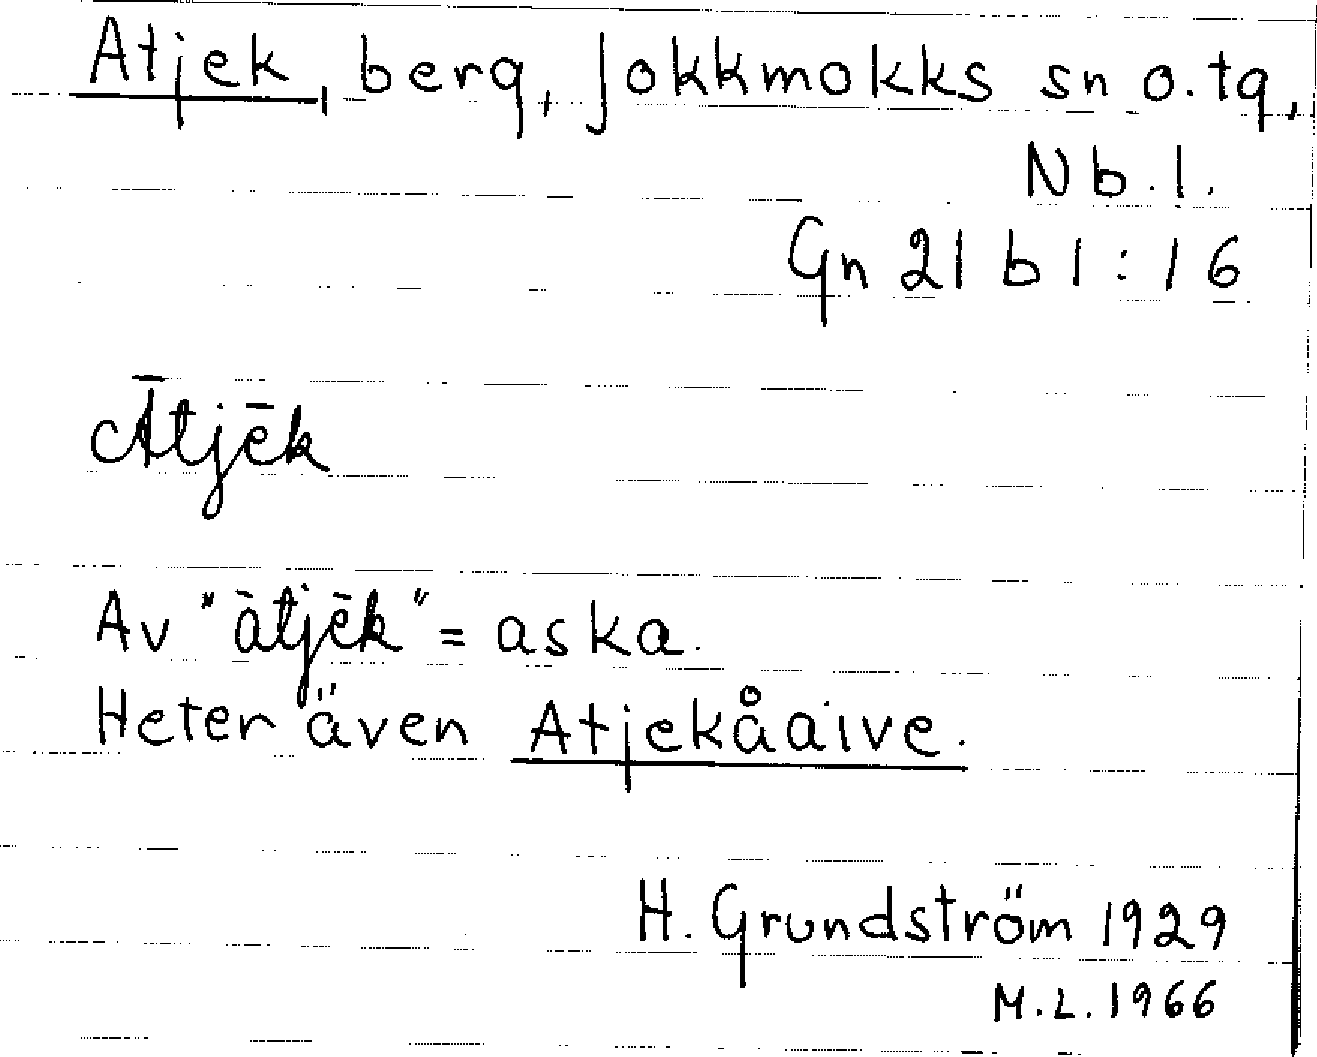 Atjek, berg, Jokkmokks sn o. tg,
Nb. l.
Gn 21 b 1:16
Ātjēk
Av "ātjēk" = aska.
Heter även Atjekåaive.
H. Grundström 1929
M.L. 1966